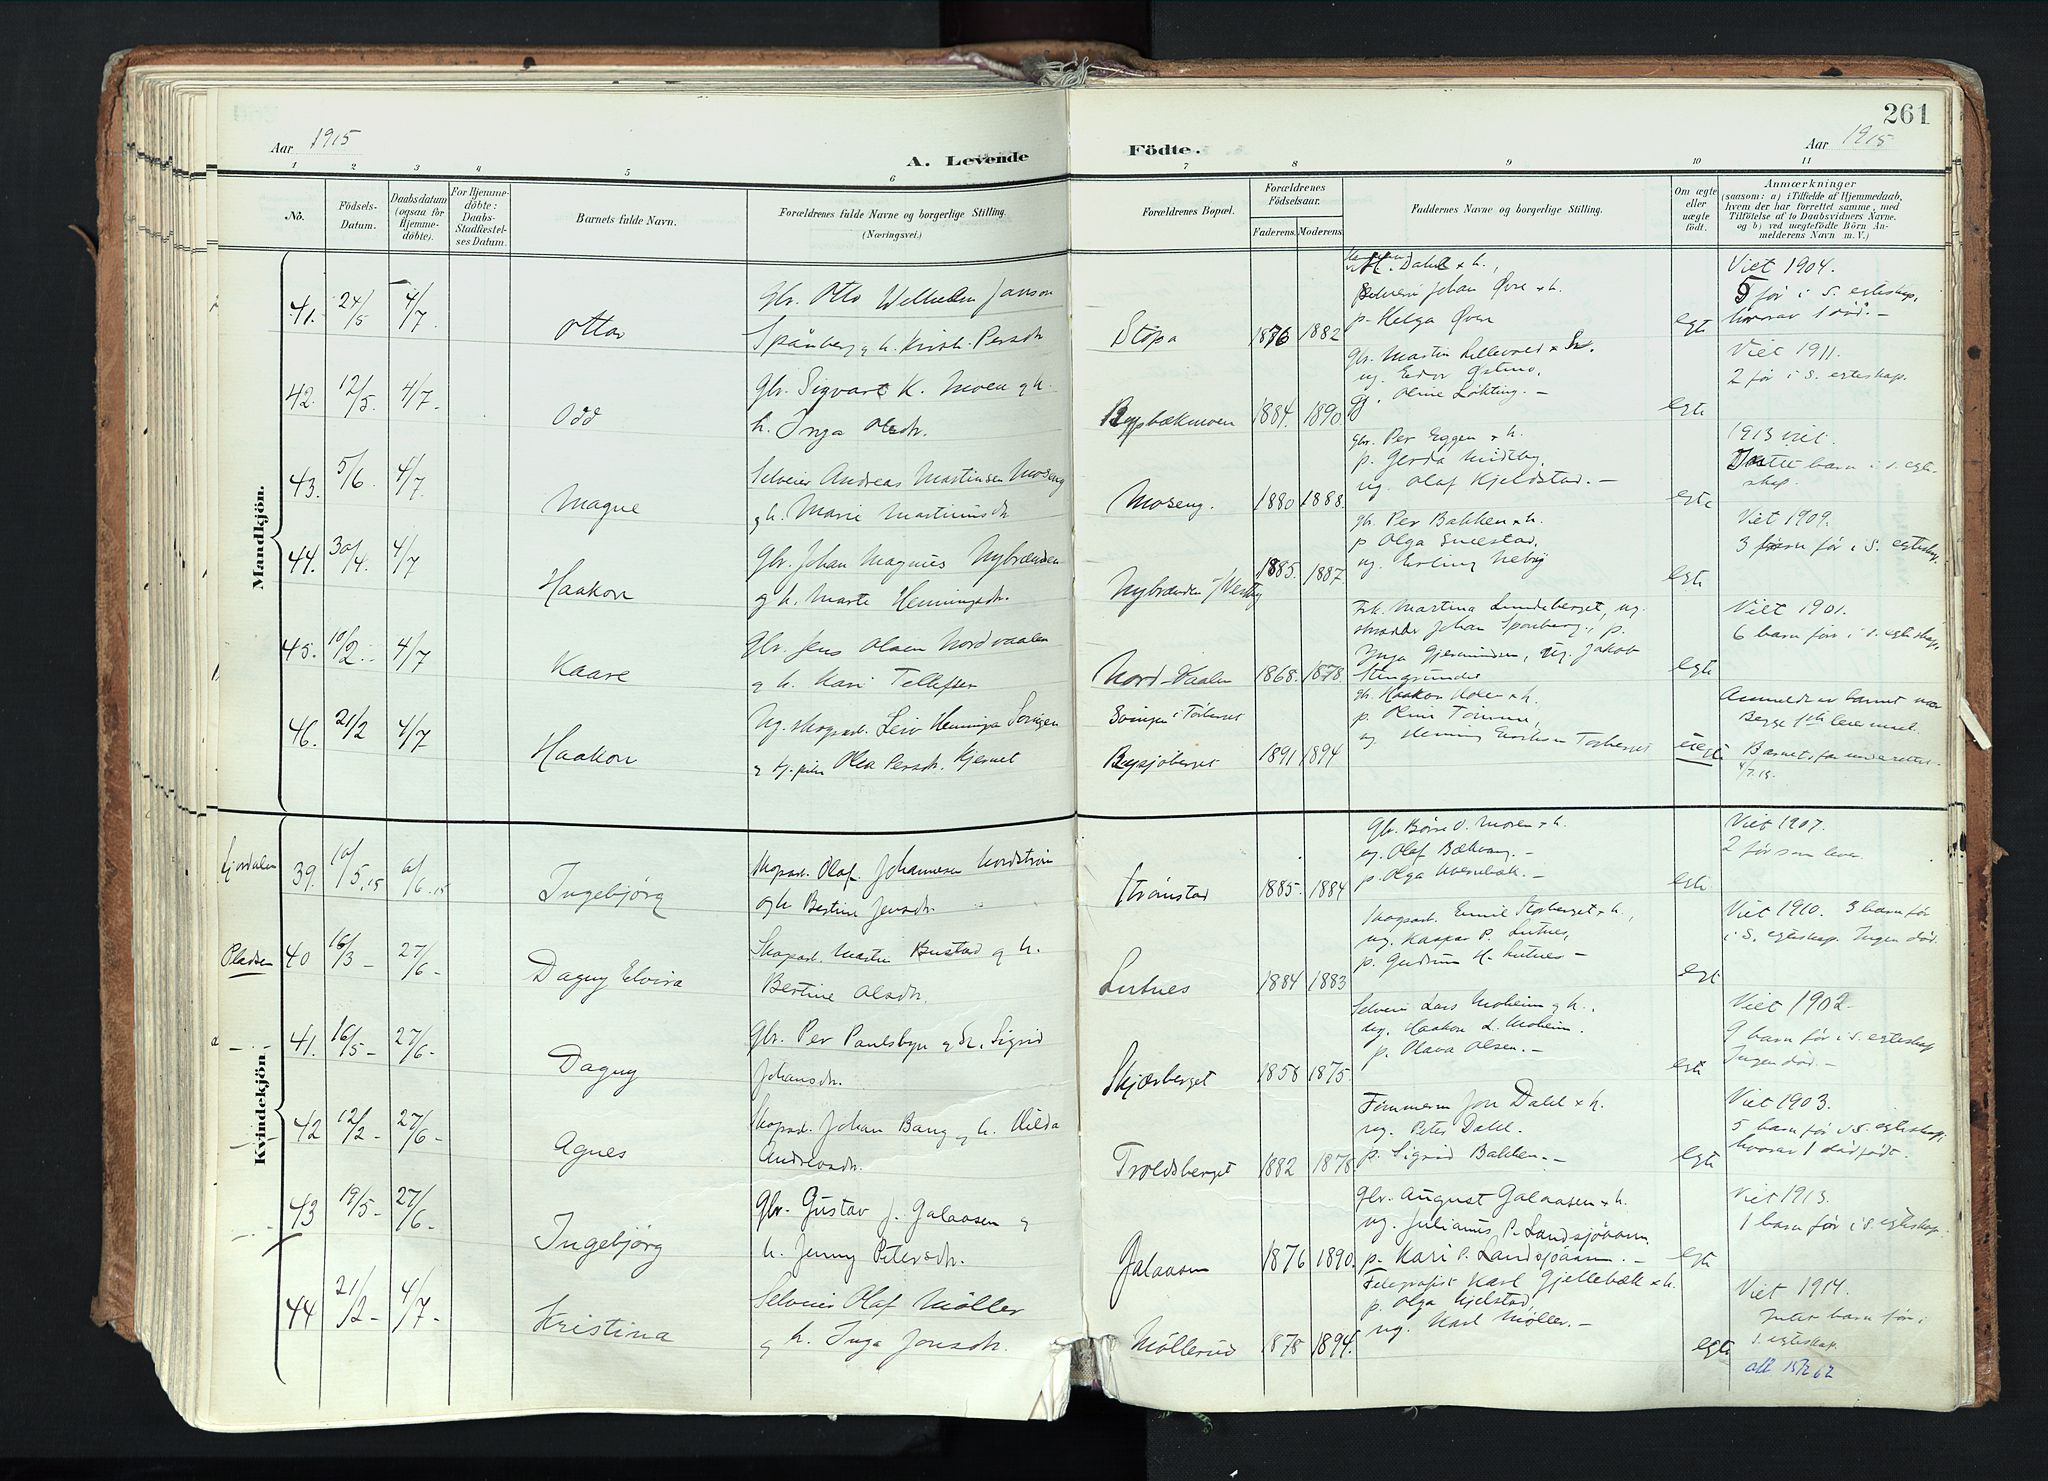 261
Aar 1915
A. Levende Födte.
Aar 1915
1 2 3 4 5 6 7 8 9 10 11
No.
Födsels-Datum.
Daabsdatum (ogsaa for Hjemme-döbte).
For Hjemme-döbte: Daabs-Stadfæstel-ses Datum.
Barnets fulde Navn.
Forældrenes fulde Navne og borgerlige Stilling.
(Næringsvei.)
Forældrenes Bopæl.
Forældrenes Födselsaar.
Faderens. Moderens.
Faddernes Navne og borgerlige Stilling.
Om ægte eller uægte født.
Anmærkninger
(saasom: a) i Tilfælde af Hjemmedaab, hvem der har forrettet samme, med Tilföielse af to Daabsvidners Navne. og b) ved uægtefödte Börn An-melderens Navn m. V.)
Mandkjön.
41. 24/5 4/7 Ottar
Gbr. Otto Wilhelm Janson
Spånberg og h. Kirsti Persdr
Stöpa 1876 1882
Dahl & h.,
Selveier Johan Øvre & h.
p. Helga Øvre
egte
Viet 1904.
5 før i s. egteskap,
hvorav 1 död. -
42. 12/5. 4/7. Odd
Gbr. Sigvart K. Moen og h.
h. Inga Olsdr.
Byggbækmoen 1884. 1890
Gbr. Martin Lillevold &
ug. Østmo,
pg. Oline Løkting. -
egte
Viet 1911.
2 før i s. egteskap.
43. 5/6. 4/7. Magne
Selveier Andreas Martinsen Moseng
og h. Marie Martinusdr
Moseng. 1880 1888.
gbr. Per Eggen & h.
p. Gerda Midtby
ug. Olaf Kjeldstad. -
egte
1913 viet.
barn i s. egte-
skap.
44. 30/4. 4/7 Haakon
Gbr. Johan Magnus Nybrænden
og h. Marte Henningsdr.
Nybrænden / Vestby 1885. 1887.
gb. Per Bakken & h.
p Olga Enestad,
ug. Erling Neby
egte
Viet 1909.
3 barn før i s. egteskap.
45. 10/2. 4/7 Kaare
Gbr. Jens Olsen Nordvaalen
og h. Kari Tellefsen
Nord-Vaalen 1868. 1878.
Frk. Martina Lundeberget, ug.
skrædder Johan Sponberg, p.
Inga Gjermundsen, ug. Jakob
Stengrundet
egte
Viet 1901.
6 barn før i s. egteskap.
46. 21/2 4/7 Haakon
Ug. skogsarb. Leiv Henningsen Soringen
og tj.pike Olea Persdr. Kjernet
Soringen i Torberget
Bysjöberget 1891 1894
gb. Haakon Moen & h.
p. Oline Tömme,
ug. Henning Torberget
uegte
Anmelder av barnet mor
Begge 1ste leiermaal.
Barnets far underrettet
4/7.15.
Kvindekjön.
Ljordalen
39. 10/5.15 6/6.15 Ingebjörg
Skogsarb. Olaf Johannesen Nordström
og h Bertine Jensdr.
Strönstad 1885. 1884
Gbr. Börre O. Moren & h.
ug. Olaf Bækvang. -
p. Olga Kvernbæk. -
egte
Viet 1907.
2 før som lever.
Pladsen
40 16/3 - 27/6 - Dagny Elvira
Skogsarb. Martin Bustad og h.
Bertine Olsdr.
Lutnes 1884 1883
Skogsarb. Emil Storberget & h.,
ug. Kaspar P. Lutnes,
p. Gudrun H. Lutnes -
egt
Viet 1910. 3 barn før
i s. egteskap. Ingen död.
41. 16/5 - 27/6 - Dagny
Gbr. Per Paulsbyn og h. Sigrid
Johansdr.
Skjærberget 1858 1875.
Selveier Lars Moheim og h.
ug. Haakon L. Moheim.
p. Olava Olsen. -
egte
Viet 1902.
9 barn før i s. egteskap
Ingen död. -
42 12/2 - 27/6 - Agnes
Skogsarb. Johan Bang og h. Hilda
Andreasdr.
Troldsberget 1882 1878
Tömmerm Jon Dahl & h.
ug. Peter Dahl.
p. Sigrid Bakken. -
egte
Viet 1903.
5 barn før i s. egteskap,
hvorav 1 dødfødt.
43 19/5 - 27/6 - Ingebjörg
Gbr. Gustav J. Galaasen og
h. Jenny Petersdr.
Galaasen 1876 1890.
Gbr. August Galaasen & h.
ug. Julianus P. Landsjöaasen.
p. Kari P. Landsjöaasen. -
egte
Viet 1913.
1 barn før i s. egteskap.
44 21/2 - 4/7 - Kristina
Selveier Olaf Möller
og h. Inga Jonsdr.
Möllerud 1878 1894.
Telegrafist Karl Gjellebæk & h.
p. Olga Kjelstad
ug. Karl Möller. -
egte
Viet 1914.
Intet barn før i
s. egteskap.
att 15/2 62